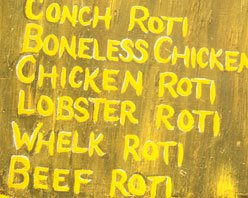 CONCH ROTI
BONELESS CHICKEN
CHICKEN ROTI
LOBSTER ROTI
WHELK ROTI
BEEF ROTI